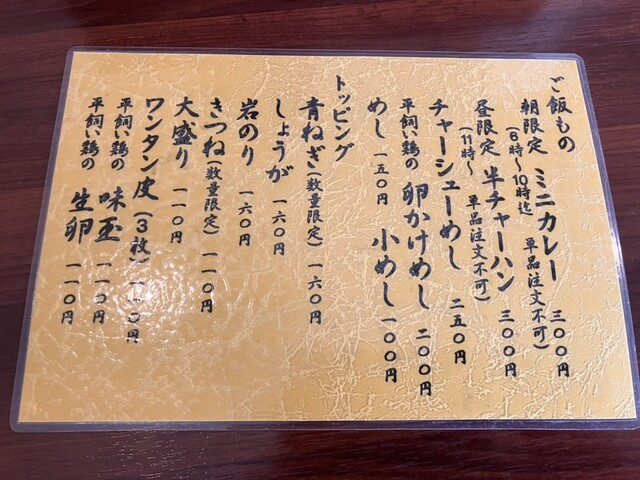 ご飯もの
朝限定 ミニカレー 三〇〇円
(8時〜10時迄 単品注文不可)
昼限定 半チャーハン 三〇〇円
(11時〜 単品注文不可)
チャーシューめし 二五〇円
平飼い鶏の 卵かけめし 二〇〇円
めし 一五〇円 小めし 一〇〇円
トッピング
青ねぎ(数量限定) 一六〇円
しょうが 一六〇円
岩のり 一六〇円
きつね(数量限定) 一一〇円
大盛り 一一〇円
ワンタン皮(3枚) 一一〇円
平飼い鶏の 味玉 一一〇円
平飼い鶏の 生卵 一一〇円